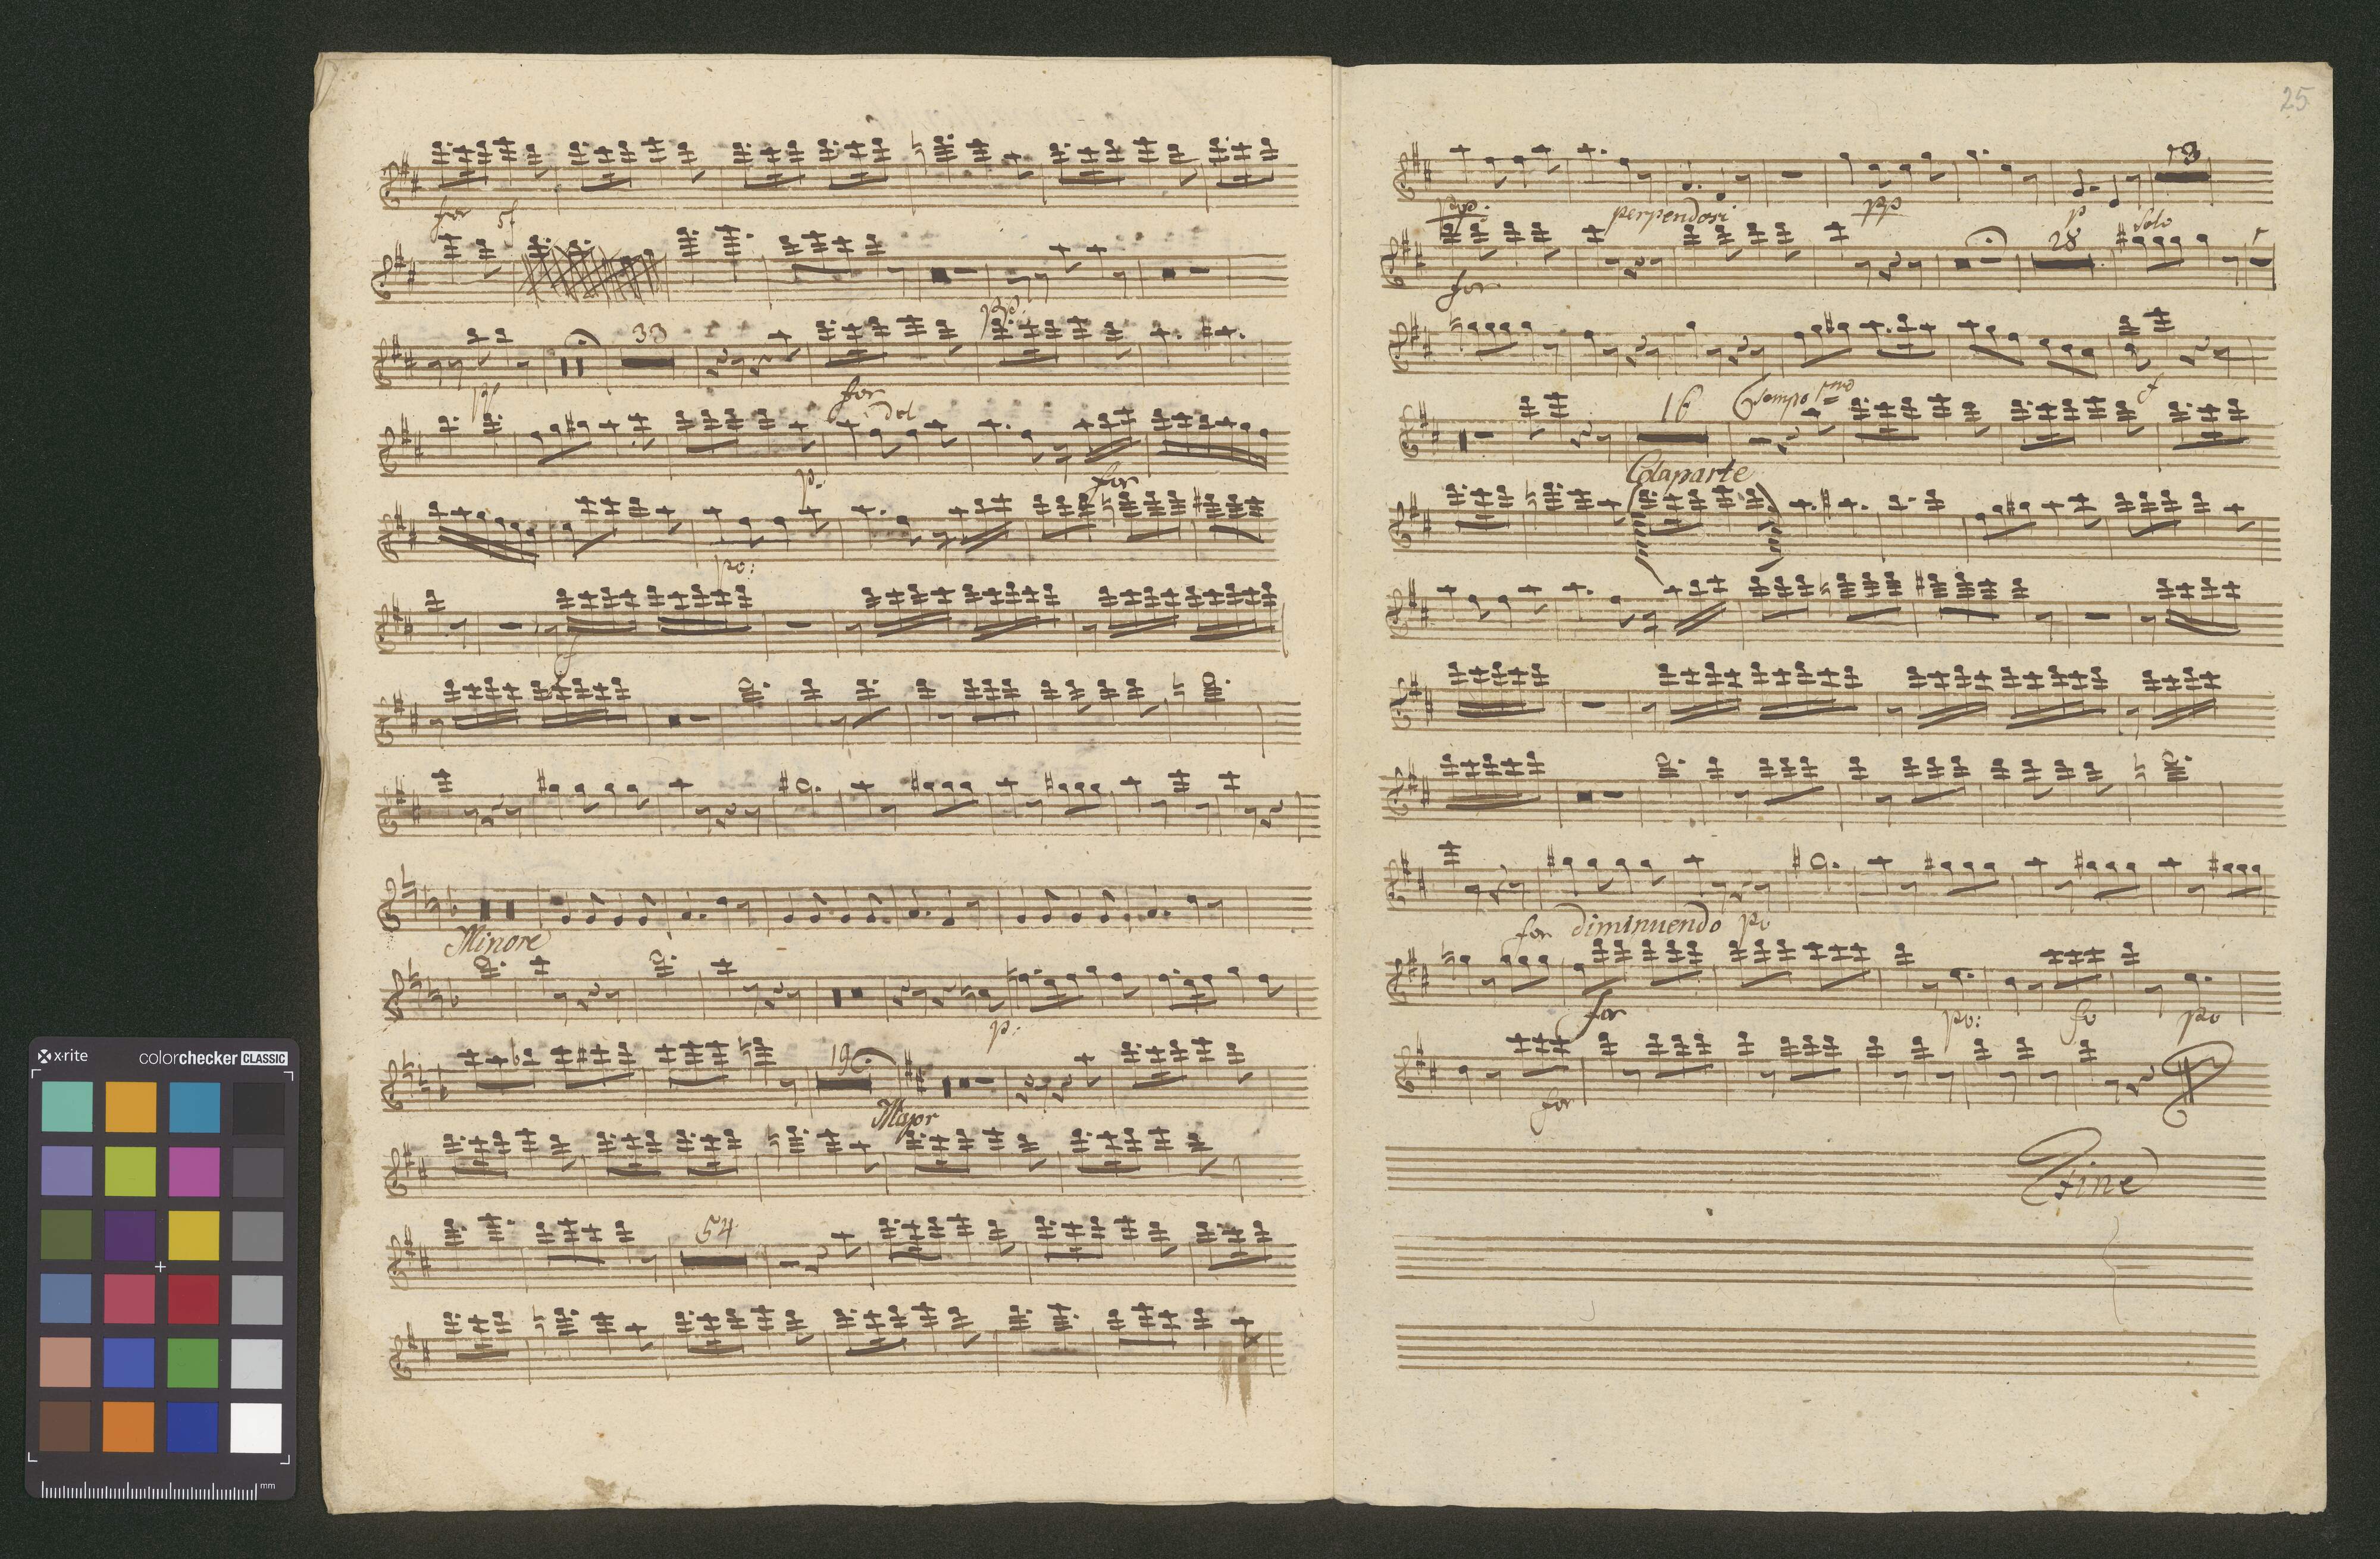 for sf
pp.
33
pp
for
dol
p.
for
po:
f
Minore
p.
19
Major
54
25
pp.
perpendosi
pp
p
3
Solo
28
for
f
16
Tempo 1mo
Colaparte
for diminuendo po
for
po:
fo
po
for
Fine
x-rite
colorchecker CLASSIC
mm